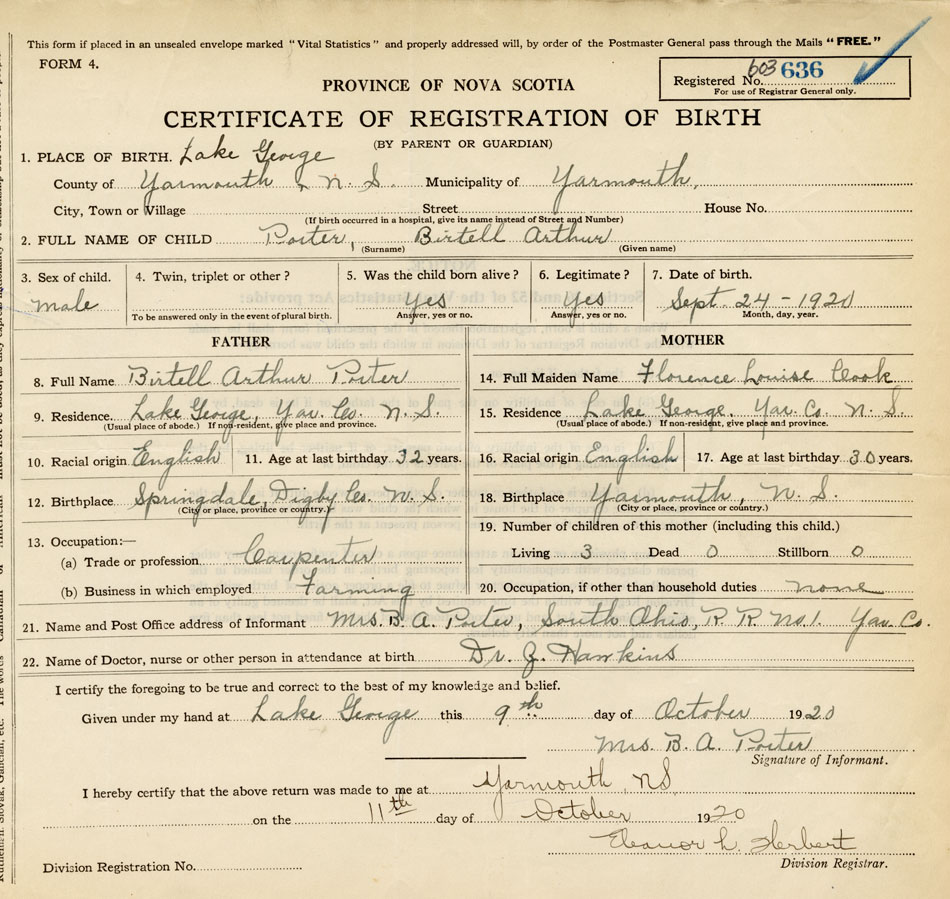 This form if placed in an unsealed envelope marked "Vital Statistics" and properly addressed will, by order of the Postmaster General pass through the Mails "FREE."
FORM 4.
Registered No. 603 636
For use of Registrar General only.
PROVINCE OF NOVA SCOTIA
CERTIFICATE OF REGISTRATION OF BIRTH
(BY PARENT OR GUARDIAN)
1. PLACE OF BIRTH. Lake George
County of Yarmouth, N. S. Municipality of Yarmouth,
City, Town or Village Street House No.
(If birth occurred in a hospital, give its name instead of Street and Number)
2. FULL NAME OF CHILD Porter, Birtell Arthur
(Surname) (Given name)
3. Sex of child. 4. Twin, triplet or other? 5. Was the child born alive? 6. Legitimate? 7. Date of birth.
male Yes Yes Sept. 24 - 1920
To be answered only in the event of plural birth. Answer, yes or no. Answer, yes or no. Month, day, year.
FATHER MOTHER
8. Full Name Birtell Arthur Porter 14. Full Maiden Name Florence Louise Cook
9. Residence. Lake George, Yar. Co. N. S. 15. Residence Lake George, Yar. Co. N. S.
(Usual place of abode.) If non-resident, give place and province. (Usual place of abode.) If non-resident, give place and province.
10. Racial origin English 11. Age at last birthday 32 years. 16. Racial origin English 17. Age at last birthday 30 years.
12. Birthplace Springdale, Digby Co. N. S. 18. Birthplace Yarmouth, N. S.
(City or place, province or country.) (City or place, province or country.)
13. Occupation:— 19. Number of children of this mother (including this child.)
(a) Trade or profession Carpenter Living 3 Dead 0 Stillborn 0
(b) Business in which employed Farming 20. Occupation, if other than household duties none
21. Name and Post Office address of Informant Mrs. B. A. Porter, South Ohio, R R No. 1. Yar. Co.
22. Name of Doctor, nurse or other person in attendance at birth Dr. Z. Hawkins
I certify the foregoing to be true and correct to the best of my knowledge and belief.
Given under my hand at Lake George this 9th day of October 1920
Mrs. B. A. Porter
Signature of Informant.
I hereby certify that the above return was made to me at Yarmouth, NS
on the 11th day of October 1920
Eleanor L. Herbert
Division Registration No. Division Registrar.